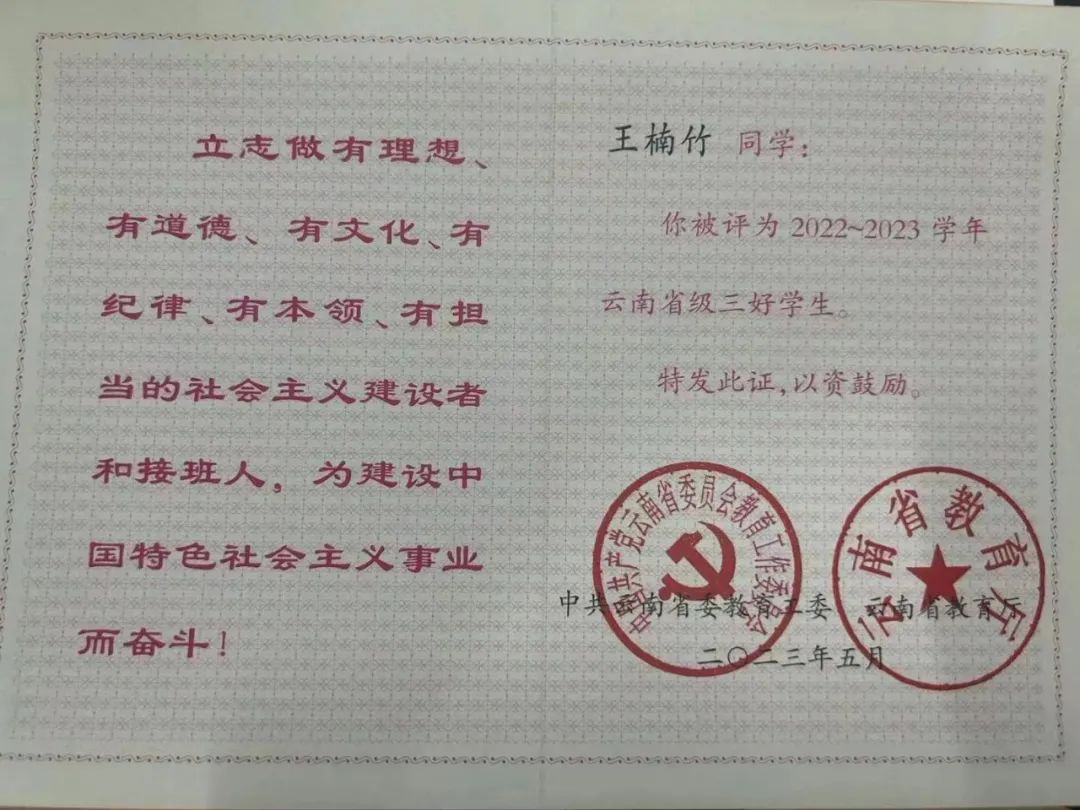 立志做有理想、
有道德、有文化、有
纪律、有本领、有担
当的社会主义建设者
和接班人，为建设中
国特色社会主义事业
而奋斗！
王楠竹 同学：
你被评为 2022~2023 学年
云南省级三好学生。
特发此证，以资鼓励。
中国共产党云南省委员会教育工作委员会
云南省教育厅
中共云南省委教育工委 云南省教育厅
二〇二三年五月